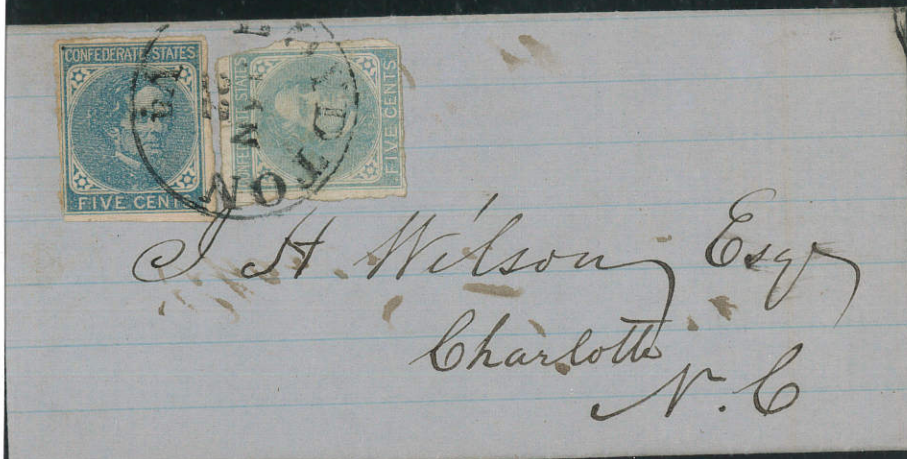 CONFEDERATE STATES
FIVE CENTS
FIVE CENTS
J H Wilson Esqr
Charlotte
N. C